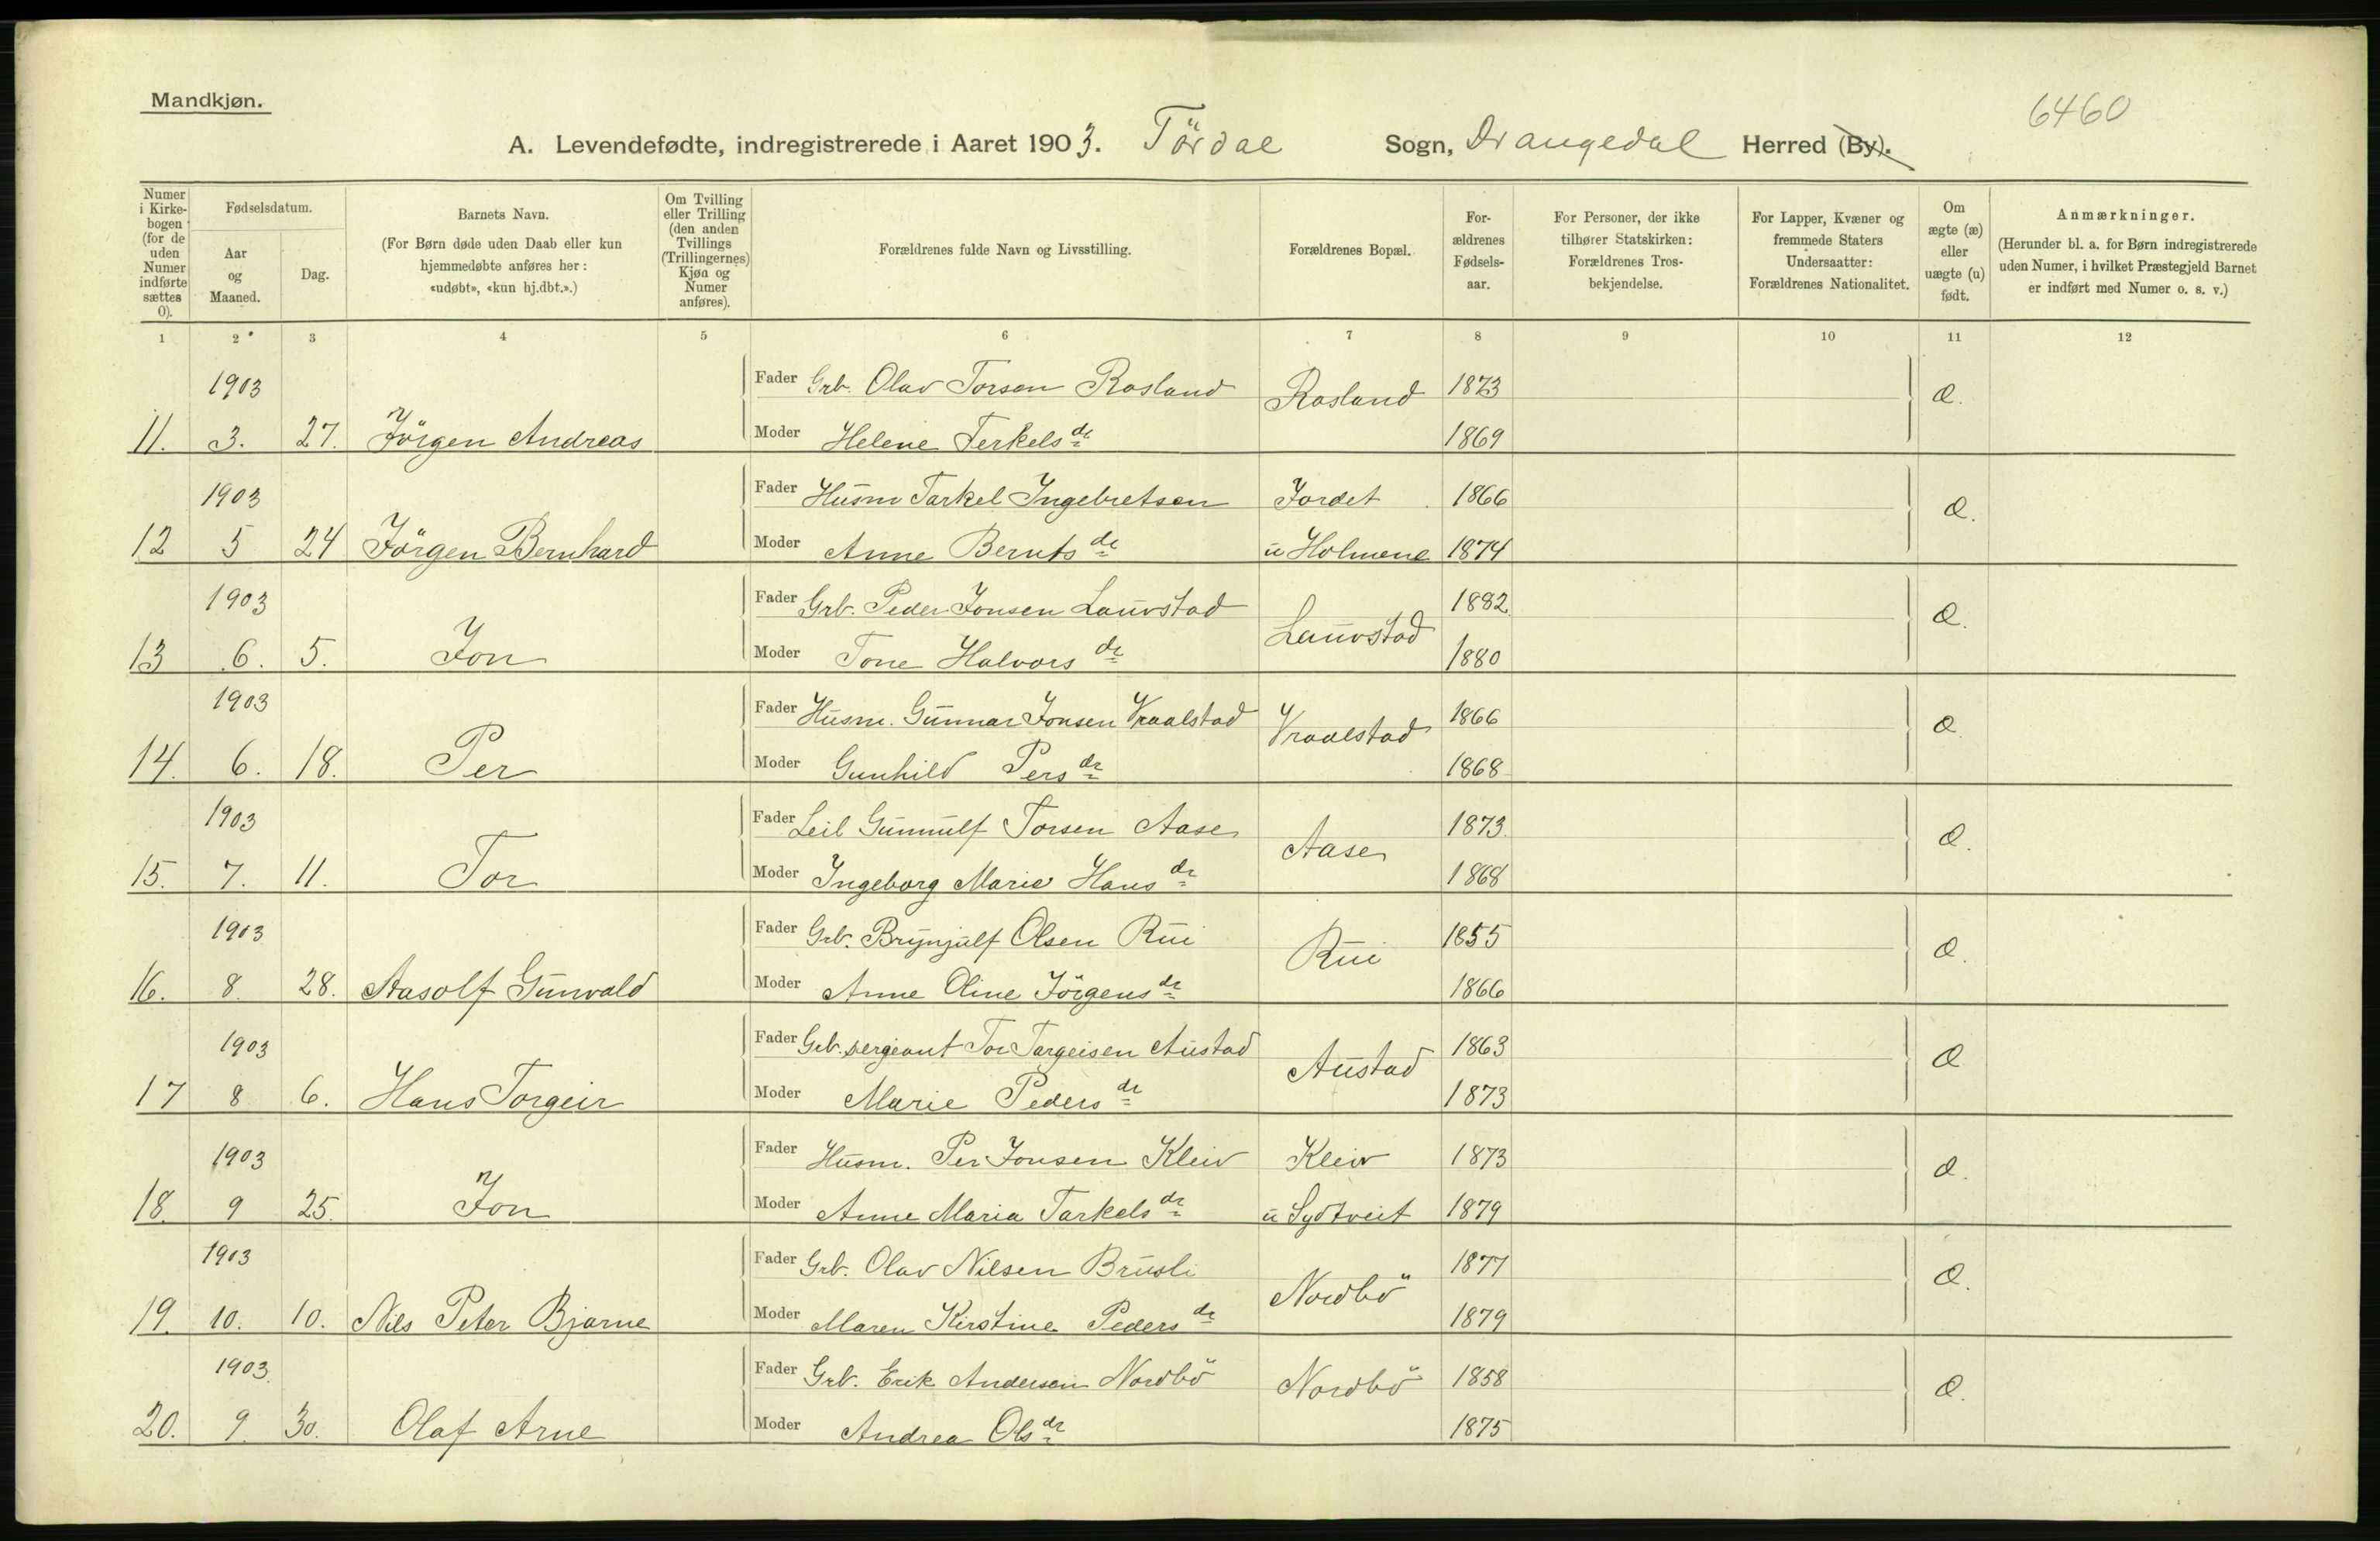 Mandkjøn.
6460
A. Levendefødte, indregistrerede i Aaret 1903. Tördal Sogn, Drangedal Herred (By).
Numer i Kirkebogen (for de uden Numer indførte sættes 0).
Fødselsdatum.
Aar og Maaned.
Dag.
Barnets Navn.
(For Børn døde uden Daab eller kun hjemmedøbte anføres her: «udøbt», «kun hj.dbt.».)
Om Tvilling eller Trilling (den anden Tvillings (Trillingernes) Kjøn og Numer anføres).
Forældrenes fulde Navn og Livsstilling.
Forældrenes Bopæl.
For-ældrenes Fødsels-aar.
For Personer, der ikke tilhører Statskirken: Forældrenes Tros-bekjendelse.
For Lapper, Kvæner og fremmede Staters Undersaatter: Forældrenes Nationalitet.
Om ægte (æ) eller uægte (u) født.
Anmærkninger.
(Herunder bl. a. for Børn indregistrerede uden Numer, i hvilket Præstegjeld Barnet er indført med Numer o. s. v.)
1 2 3 4 5 6 7 8 9 10 11 12
1903 Fader Grb. Olav Torsen Rosland Rosland 1873 æ.
11. 3. 27. Jörgen Andreas Moder Helene Terkelsdr 1869
1903 Fader Husm Tarkel Ingebretsen Jordet 1866 æ.
12 5 24 Jörgen Bernhard Moder Anne Berntsdr u Holmene 1874
1903 Fader Grb. Peder Jonsen Lauvstad Lauvstad 1882. æ.
13 6. 5. Jon Moder Tone Halvorsdr 1880
1903 Fader Husm. Gunnar Jonsen Vraalstad Vraalstad 1866 æ.
14. 6. 18. Per Moder Gunhild Persdr 1868
1903 Fader Leil Gunnulf Torsen Aase Aase 1873. æ.
15. 7. 11. Tor Moder Ingeborg Marie Hansdr 1868
1903 Fader Grb. Brynjulf Olsen Rui Rui 1855 æ.
16. 8. 28. Aasolf Gunvald Moder Anne Oline Jörgensdr 1866
1903 Fader Grb. sergeant Tor Targeisen Austad Austad 1863 æ
17 8 6. Hans Torgeir Moder Marie Pedersdr 1873
1903 Fader Husm. Per Jonsen Kleiv Kleiv 1873 æ.
18. 9 25. Jon Moder Anne Maria Tarkelsdr u Sydtveit 1879
1903 Fader Grb. Olav Nilsen Brusli Nordbö 1877 æ.
19. 10. 10. Nils Peter Bjarne Moder Maren Kirstine Pedersdr 1879
1903. Fader Grb. Erik Andersen Nordbö Nordbö 1858 æ.
20. 9. 30. Olaf Arne Moder Andrea Olsdr 1875